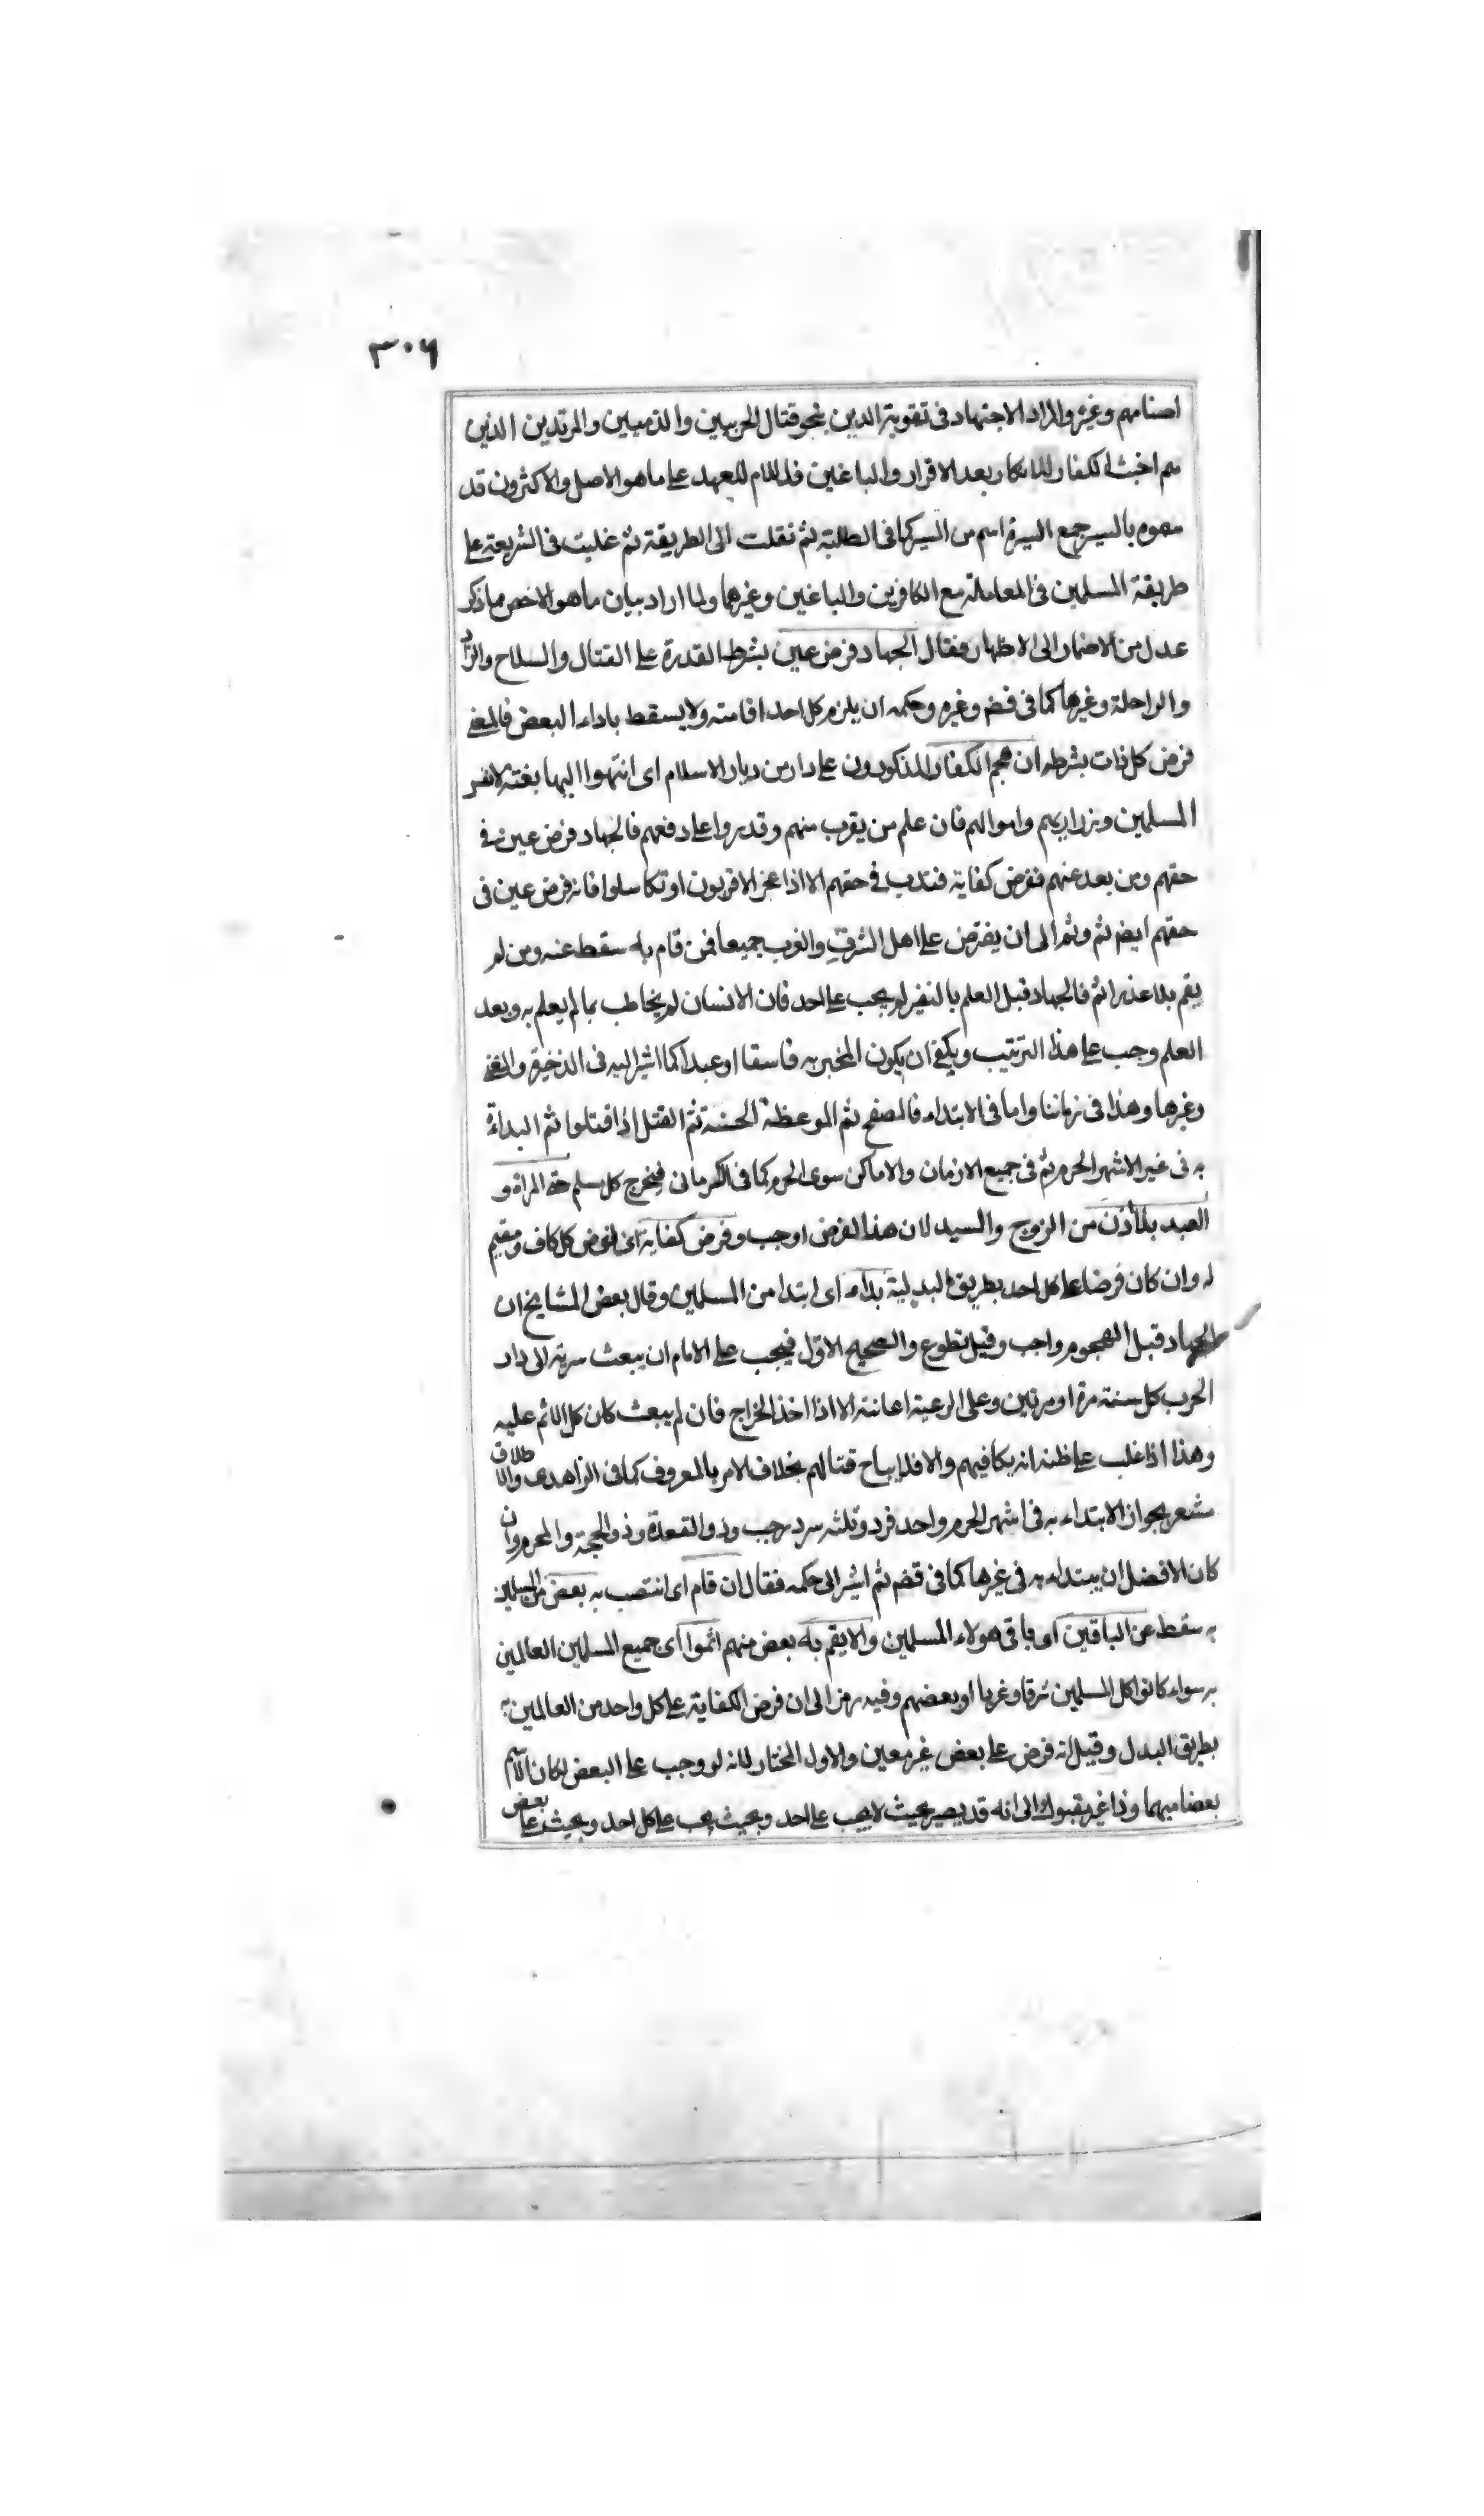 ٣٠٦
اصنامهم وغيره والمراد الاجتهاد فى تقوية الدين بنحو قتال الحربيين والذميين والمرتدين الذين
هم اخبث الكفار للانكار بعد الاقرار والباغين فاللام للعهد على ما هو الاصل والاكثرون قد
سموه بالسير جمع السيرة اسم من السير كما فى الطلبة ثم نقلت الى الطريقة ثم غلبت فى الشريعة على
طريقة المسلمين فى المعاملة مع الكافرين والباغين وغيرهما ولما اراد بيان ما هو الاخص مما ذكر
عدل من الاضمار الى الاظهار فقال الجهاد فرض عين بشرط القدرة على القتال والسلاح والزاد
والراحلة وغيرها كما فى قضـ وغيره وحكمه ان يلزم كل احد اقامته ولا يسقط باداء البعض فالمعنى
فرض كل ذات بشرطه ان هجم الكفار المذكورون على دار من ديار الاسلام اى انتهوا اليها بغتة لانفس
المسلمين وذراريهم واموالهم فان علم من يقرب منهم وقدروا على دفعهم فالجهاد فرض عين فى
حقهم ومن بعد عنهم ففرض كفاية فندب فى حقهم الا اذا عجز الاقربون او تكاسلوا فانه فرض عين فى
حقهم ايضم ثم وثم الى ان يفترض على اهل الشرق والغرب جميعا فمن قام به سقط عنه ومن لم
يقم بلا عذر اثم فالجهاد قبل العلم بالنفير لم يجب على احد فان الانسان لم يخاطب بما لم يعلم به وبعد
العلم وجب على هذا الترتيب ويكفى ان يكون المخبر به فاسقا او عبدا كما اشير اليه فى الذخيرة والمغنى
وغيرها وهذا فى زماننا واما فى الابتداء فالصفح ثم الموعظة الحسنة ثم القتل اذا قتلوا ثم البداءة
به فى غير الاشهر الحرم ثم فى جميع الازمان والاماكن سوى الحرم كما فى الكرمانى فيخرج كل مسلم حتى المراة و
العبد بلا اذن من الزوج والسيد لان هذا الفرض اوجب وفرض كفاية اى فرض كل كاف ومقيم
له وان كان فرضا على كل احد بطريق البدلية بداء اى ابتدا من المسلمين وقال بعض المشايخ ان
الجهاد قبل الهجوم واجب وقيل تطوع والصحيح الاول فيجب على الامام ان يبعث سرية الى دار
الحرب كل سنة مرة او مرتين وعلى الرعية اعانته الا اذا اخذ الخراج فان لم يبعث كان كل الاثم عليه
وهذا اذا غلب على ظنه انه يكافيهم والا فلا يباح قتالهم بخلاف الامر بالمعروف كما فى الزاهدى والاطلاق
مشعر بجواز الابتداء به فى اشهر الحرم واحد فرد وثلثه سرد رجب وذو القعدة وذو الحجة والمحرم وان
كان الافضل ان يبتداء به فى غيرها كما فى قضم ثم اشير الى حكمه فقال ان قام اى انتصب به بعض من المسلمين
به سقط عن الباقين اى باقى هولاء المسلمين والا يقم به بعض منهم اثموا اى جميع المسلمين العالمين
به سواء كانوا كل المسلمين شرقا وغربا او بعضهم وفيه رمز الى ان فرض الكفاية على كل واحد من العالمين به
بطريق البدل وقيل انه فرض على بعض غير معين والاول المختار لانه لو وجب على البعض لكان الاثم
بعضا مبهما وذا غير مقبول الى انه قد يصير بحيث لا يجب على احد وبحيث يجب على كل احد وبحيث على بعض